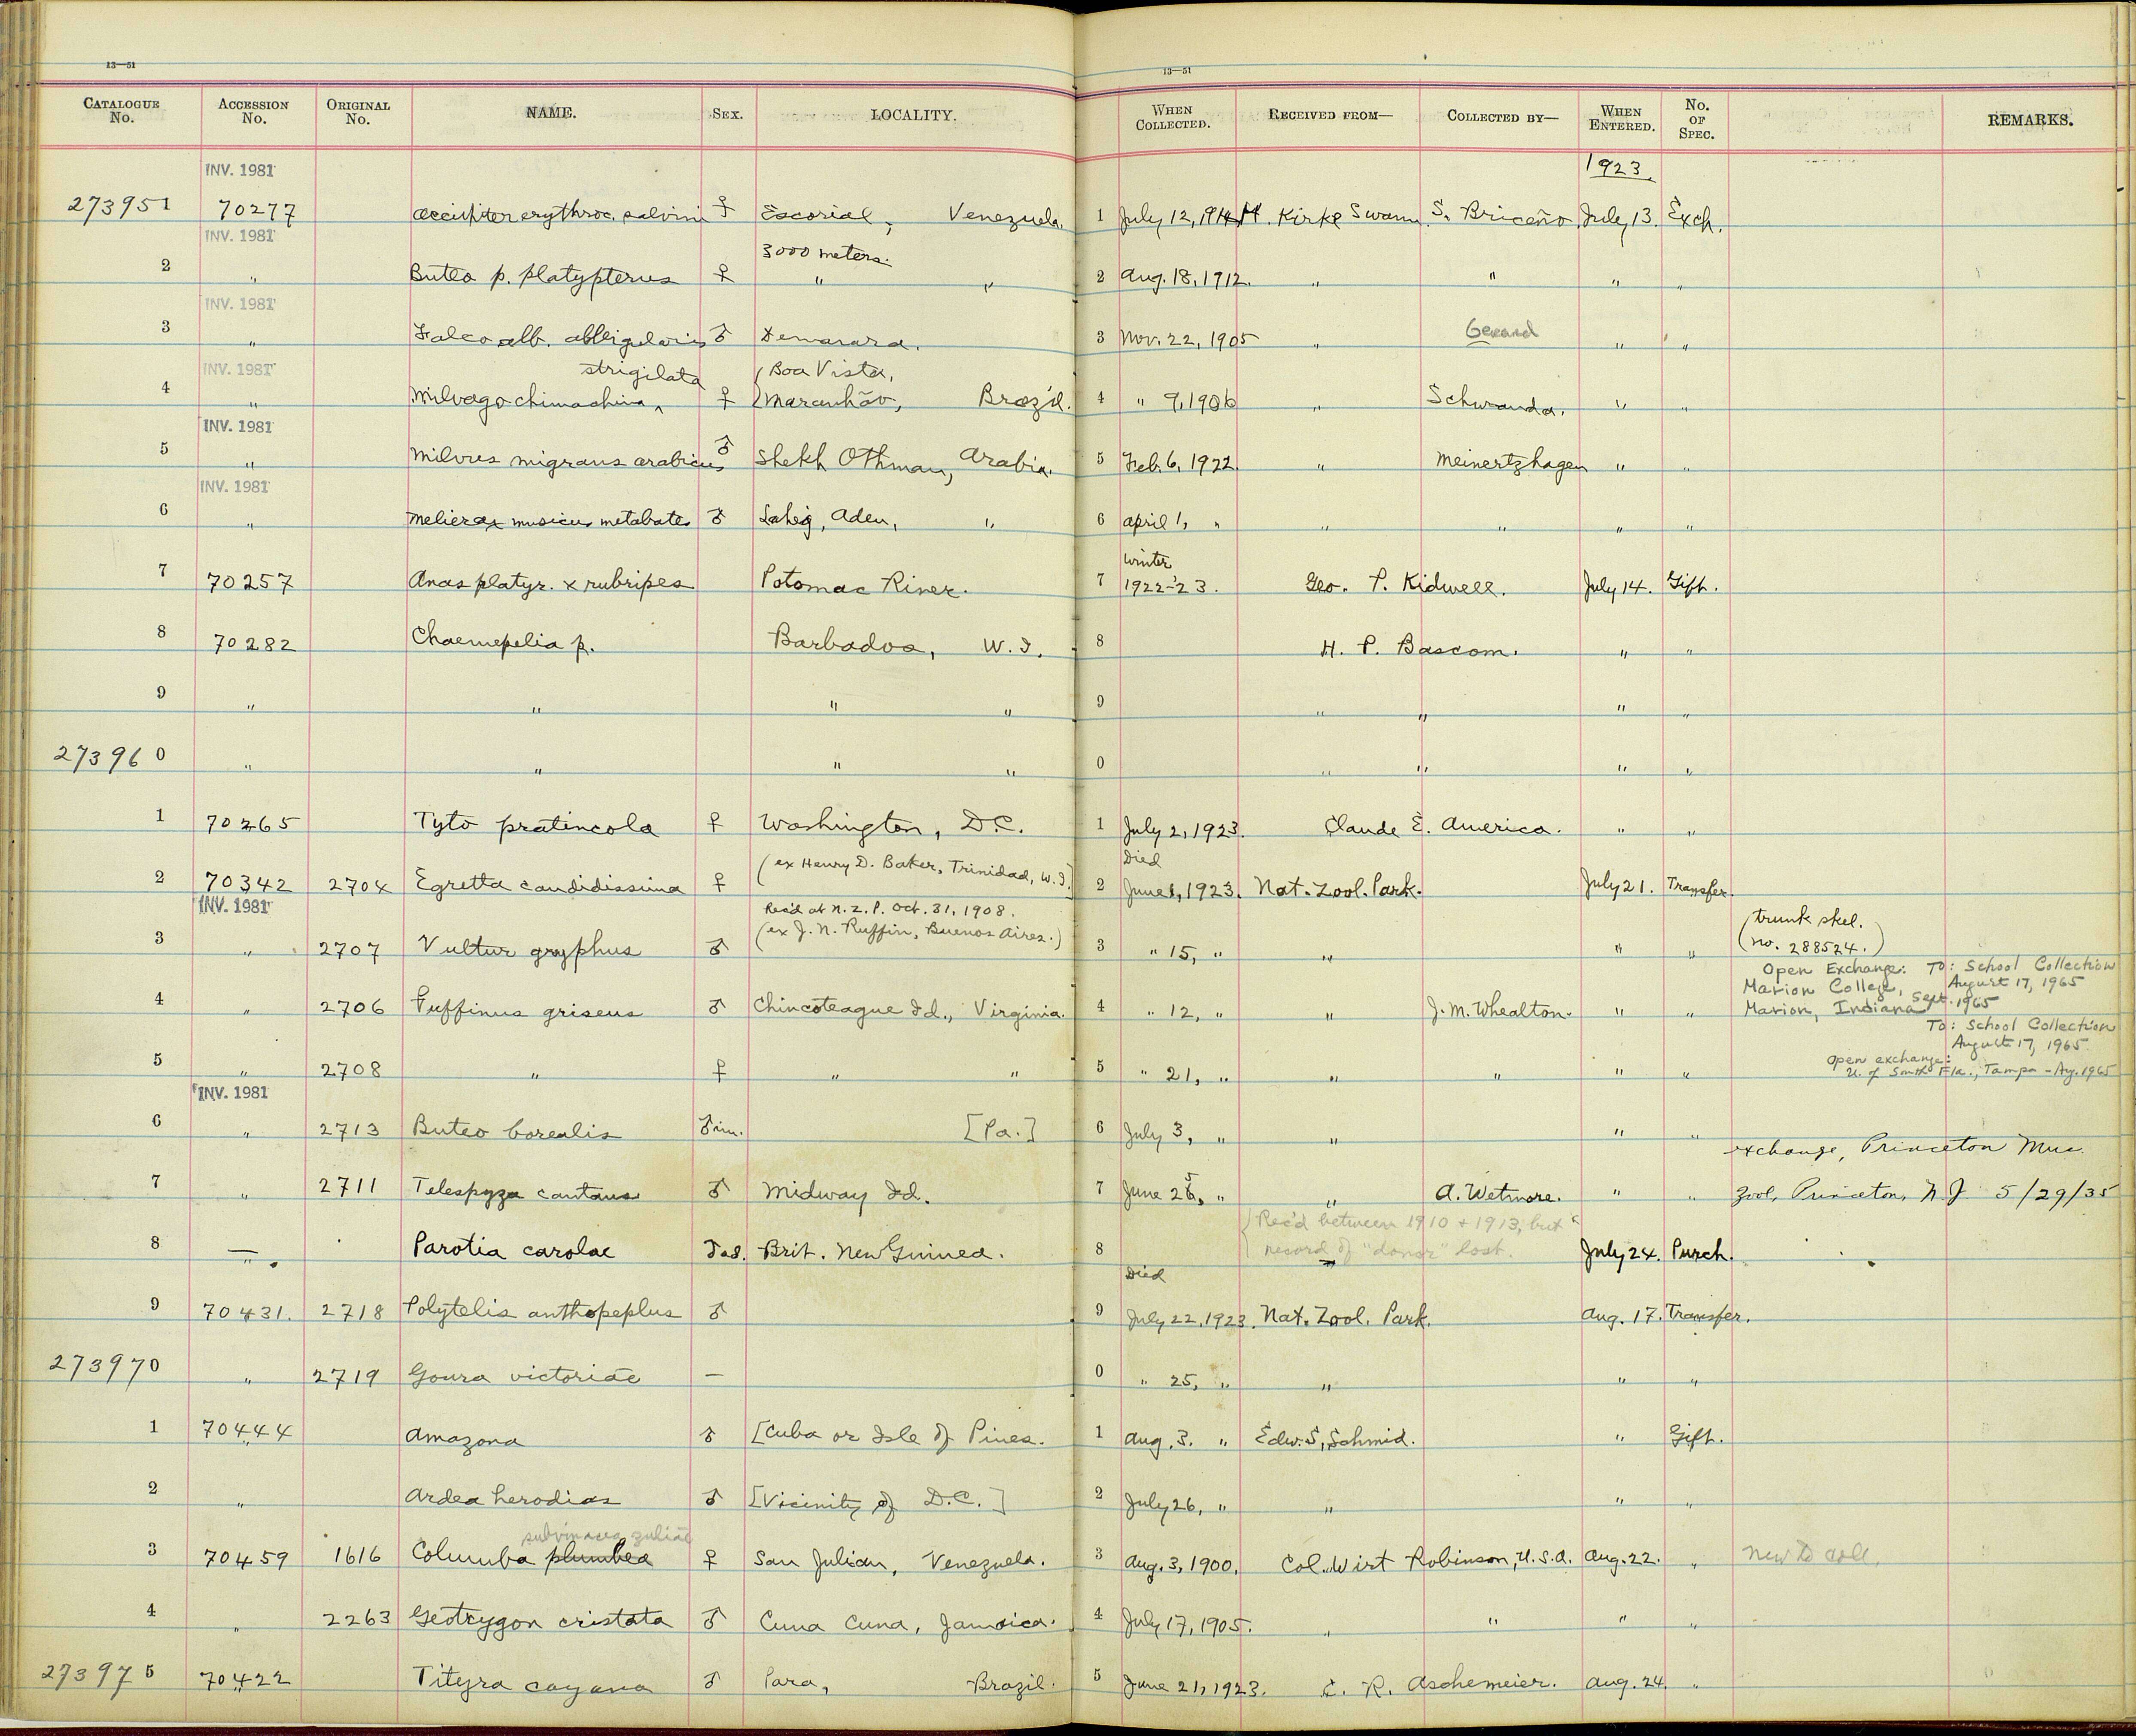 13—51 13—51
CATALOGUE No. ACCESSION No. ORIGINAL No. NAME. SEX. LOCALITY. WHEN COLLECTED. RECEIVED FROM— COLLECTED BY— WHEN ENTERED. No. OF SPEC. REMARKS.
INV. 1981 1923.
273951 70277 Accipiter erythroc. salvini ♀ Escorial, Venezuela. 1 July 12, 1914 H. Kirke Swann. S. Briceño. July 13. Exch.
INV. 1981 3000 meters.
2 " Buteo p. platypterus ♀ " " 2 Aug. 18, 1912. " " " "
INV. 1981
3 " Falco alb. albigularis ♂ Demarara. 3 Nov. 22, 1905 " Gerard " "
INV. 1981 strigilata (Boa Vista,
4 " Milvago chimachima ^ ♀ Maranhão, Brazil. 4 " 9, 1906 " Schwanda. " "
INV. 1981
5 " Milvus migrans arabicus ♂ Shekh Othman, Arabia. 5 Feb. 6, 1922. " Meinertzhagen " "
INV. 1981
6 " Melierax musicus metabates ♂ Lahej, Aden, " 6 April 1, " " " " "
Winter
7 70257 Anas platyr. x rubripes Potomac River. 7 1922-'23. Geo. P. Kidwell. July 14. Gift.
8 70282 Chaemepelia p. Barbados, W. I. 8 H. P. Bascom. " "
9 " " " " 9 " " " "
273960 " " " " 0 " " " "
1 70265 Tyto pratincola ♀ Washington, D.C. 1 July 2, 1923. Claude E. America. " "
(ex Henry D. Baker, Trinidad, W.I.) Died
2 70342 2704 Egretta candidissima ♀ 2 June 1, 1923. Nat. Zool. Park. July 21. Transfer.
INV. 1981 Rec'd at N.Z.P. Oct. 31, 1908. (trunk skel.
3 " 2707 Vultur gryphus ♂ (ex J. N. Ruffin, Buenos Aires.) 3 " 15, " " " " (no. 288524.)
Open Exchange: To: School Collection
Marion College, August 17, 1965
4 " 2706 Puffinus griseus ♂ Chincoteague Id., Virginia. 4 " 12, " " J. M. Whealton. " " Marion, Indiana Sept. 1965
To: School Collection
August 17, 1965
Open exchange:
5 " 2708 " ♀ " " 5 " 21, " " " " " U. of South Fla., Tampa - Ag. 1965
INV. 1981
6 " 2713 Buteo borealis ♂ im. [Pa.] 6 July 3, " " " "
exchange, Princeton Mus.
7 " 2711 Telespyza cantans ♂ Midway Id. 7 June 25, " " A. Wetmore. " " Zool, Princeton, N J 5/29/35
(Rec'd between 1910 + 1913, but
8 — Parotia carolae ♂ ad. Brit. New Guinea. 8 record of "donor" lost. July 24. Purch.
Died
9 70431. 2718 Polytelis anthopeplus ♂ 9 July 22, 1923. Nat. Zool. Park. Aug. 17. Transfer.
273970 " 2719 Goura victoriae — 0 " 25, " " " "
1 70444 Amazona ♂ [Cuba or Isle of Pines. 1 Aug. 3. " Edw. S. Schmid. " Gift.
2 " Ardea herodias ♂ [Vicinity of D.C.] 2 July 26, " " " "
subvinacea zuliae
3 70459 1616 Columba plumbea ♀ San Julian, Venezuela. 3 Aug. 3, 1900. Col. Wirt Robinson, U.S.A. Aug. 22. " New to coll.
4 " 2263 Geotrygon cristata ♂ Cuna Cuna, Jamaica. 4 July 17, 1905. " " " "
273975 70422 Tityra cayana ♂ Para, Brazil. 5 June 21, 1923. C. R. Aschemeier. Aug. 24. "